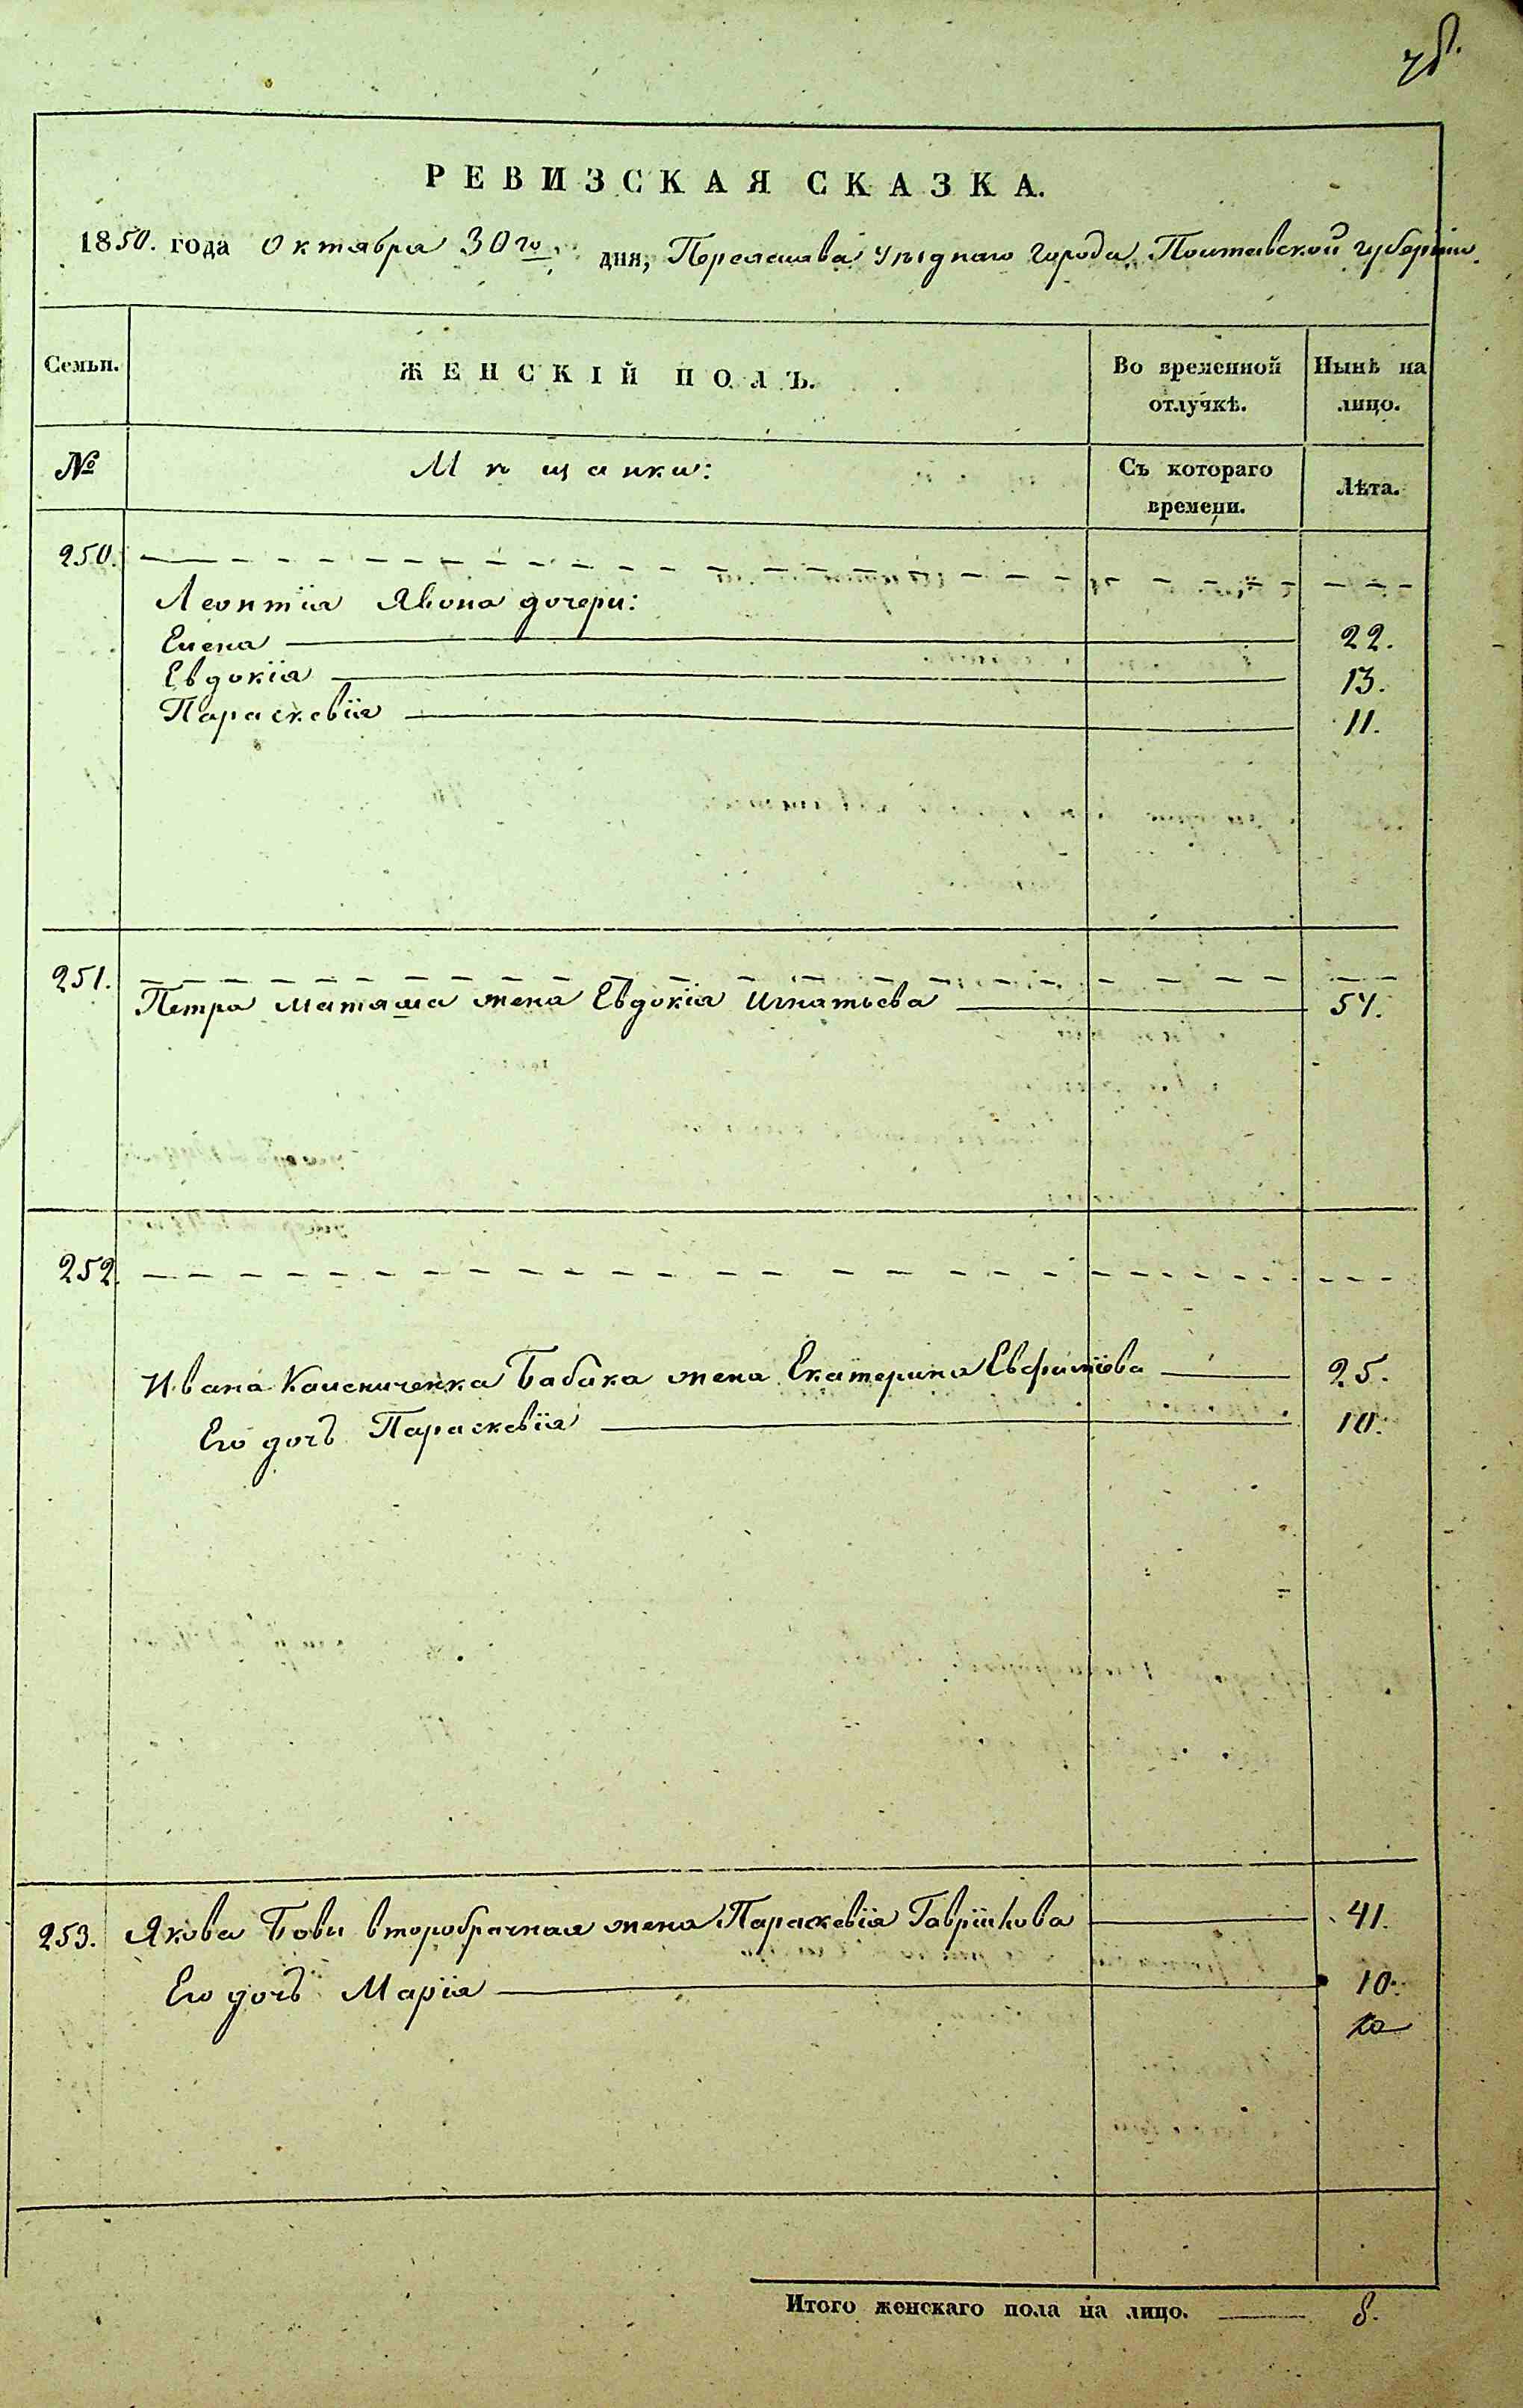 РЕВИЗСКАЯ СКАЗКА.
1850. года Октября 30го. дня, Переяслава уѣзднаго города, Полтавской губерніи.
Семьи. ЖЕНСКІЙ ПОЛЪ. Во временной отлучкѣ. Нынѣ на лицо.
№ Мѣщанки: Съ котораго времени. Лѣта.
250.
Леонтія Явона дочери:
Елена 22.
Евдокія 13.
Параскевія 11.
251.
Петра Матяша жена Евдокія Игнатьева 54.
252.
Ивана Бабака жена Екатерина Евфимова 25.
Его дочь Параскевія 10.
253. Якова Бови второбрачная жена Параскевія Гаврилова 41.
Его дочь Марія 10.
Итого женскаго пола на лицо. 8.